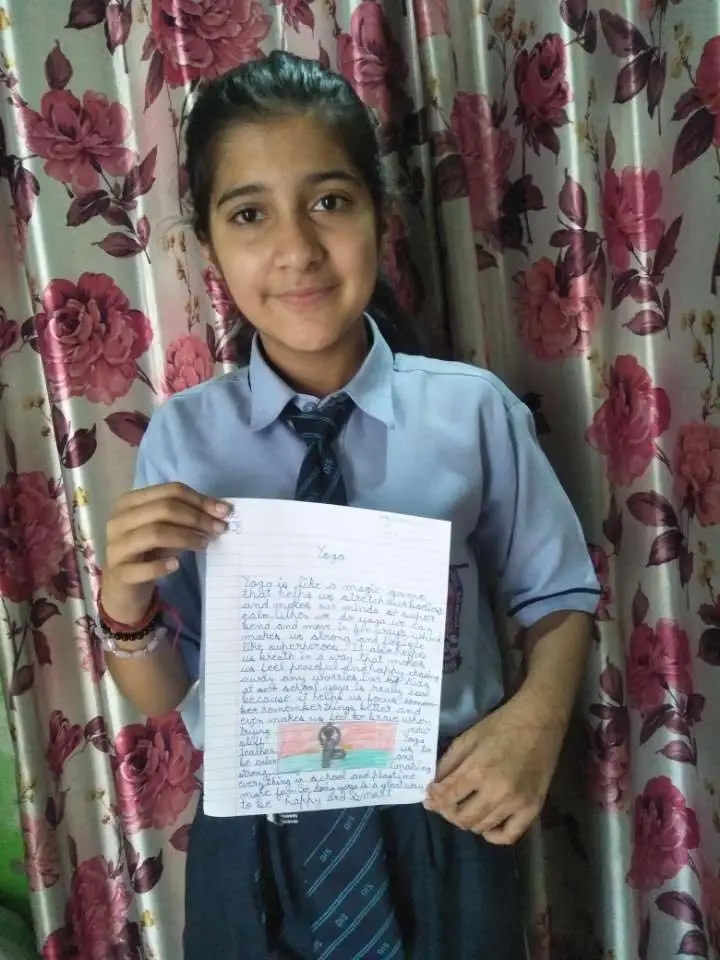 Yoga
Yoga is like a magic game
that helps us stretch our bodies
and makes our minds so super
calm. When we do yoga we can
bend and move in fun ways which
makes us strong and flexible
like superheroes. It also helps
us breath in a way that makes
us feel peaceful and happy chasing
away any worries. For us kids
at our school yoga is really cool
because it helps us focus remem-
ber remember things better and
even makes us feel so brave when
trying new
stuff Yoga
teaches us to
be calm and
strong making
everything in school and playtime
more fun. So doing yoga is a great way
to be happy and smart
DIS
DIS
DIS
DIS